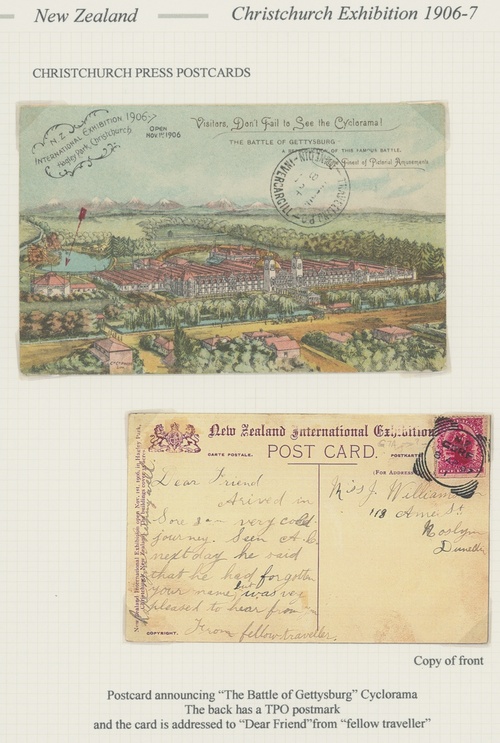 New Zealand
Christchurch Exhibition 1906-7
CHRISTCHURCH PRESS POSTCARDS
N.Z. INTERNATIONAL EXHIBITION 1906-7
Hagley Park, Christchurch
OPEN
Nov. 1st 1906
Visitors, Don't Fail to See the Cyclorama!
THE BATTLE OF GETTYSBURG
OF THIS FAMOUS BATTLE.
Finest of Pictorial Amusements
TRAVELLING P.O.
DUNEDIN-INVERCARGILL
New Zealand International Exhibition
CARTE POSTALE.
POST CARD.
POSTKARTE
(For Address
New Zealand International Exhibition open Nov. 1st, 1906, in Hagley Park,
Christchurch, New Zealand. The buildings cover
Dear Friend
Arived in
very cold
journey. Seen
next day he said
that he had forgotten
your name, but was
pleased to hear from
From fellow traveller.
COPYRIGHT.
Miss J. William
118
St
Roslyn
Dunedin
Copy of front
Postcard announcing “The Battle of Gettysburg” Cyclorama
The back has a TPO postmark
and the card is addressed to “Dear Friend”from “fellow traveller”